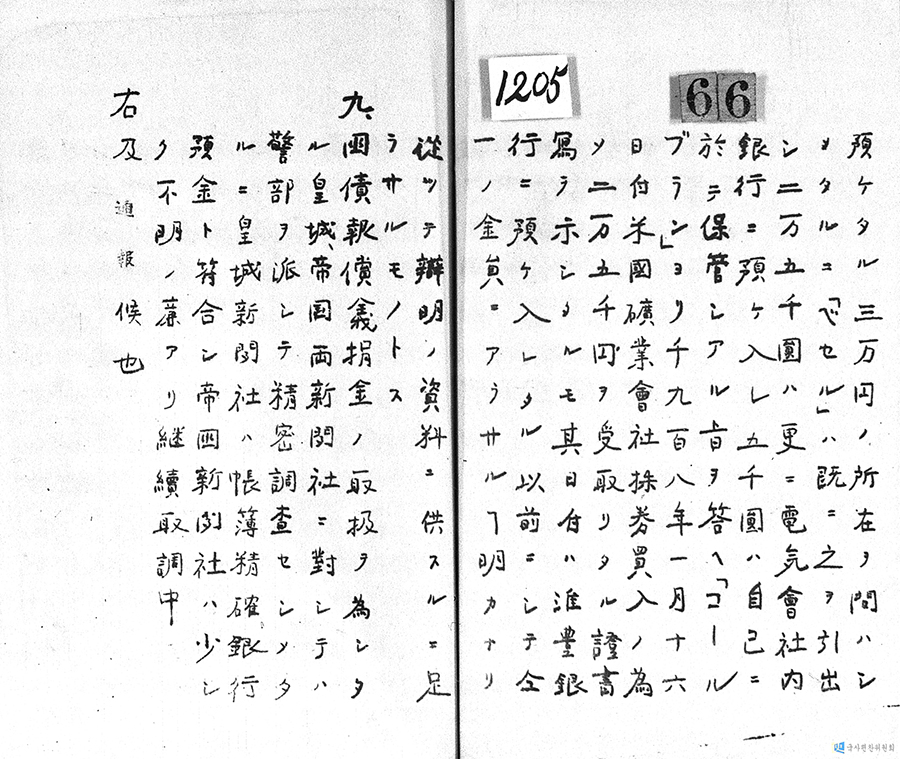 1205
66
預ケタル三万円ノ所在ヲ問ハシ
メタルニ「ベセル」ハ既ニ之ヲ引出
シ二万五千圓ハ更ニ電気會社内
銀行ニ預ケ入レ五千圓ハ自己ニ
於テ保管シアル旨ヲ答ヘ「コール
ブラン」ヨリ千九百八年一月十六
日付米國礦業會社株券買入ノ為
メ二万五千円ヲ受取リタル證書
寫ヲ示シタルモ其日付ハ淮豊銀
行ニ預ケ入レタル以前ニシテ仝
一ノ金員ニアラサルヿ明カナリ
從ツテ辯明ノ資料ニ供スルニ足
ラサルモノトス
九、國債報償義捐金ノ取扱ヲ為シタ
ル皇城、帝国両新聞社ニ對シテハ
警部ヲ派シテ精密調査セシメタ
ルニ皇城新聞社ハ帳簿精確銀行
預金ト符合シ帝國新聞社ハ少シ
ク不明ノ廉アリ継續取調中
右及通報候也
국사편찬위원회